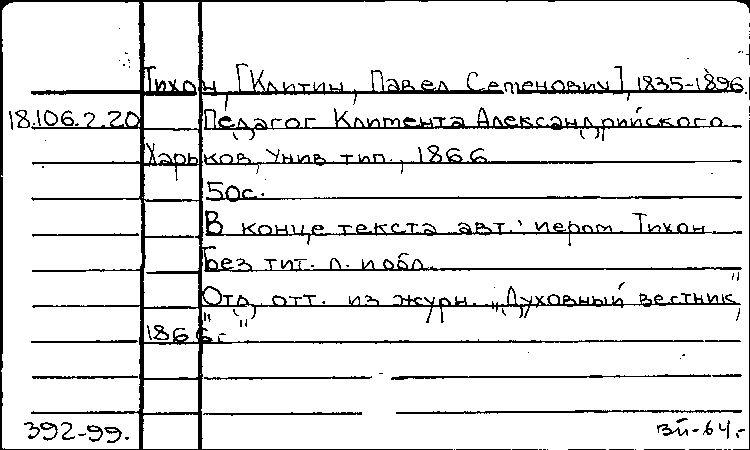 Тихон, [Клитин, Павел Семенович], 1835-1896.
18.106.2.20 Педагог Климента Александрийского
Харьков, Унив тип., 1866
50с.
В конце текста авт.: иером. Тихон.
Без тит. л. и обл.
Отд. отт. из журн. „Духовный вестник"
1866г.
392-99. зй-64.-